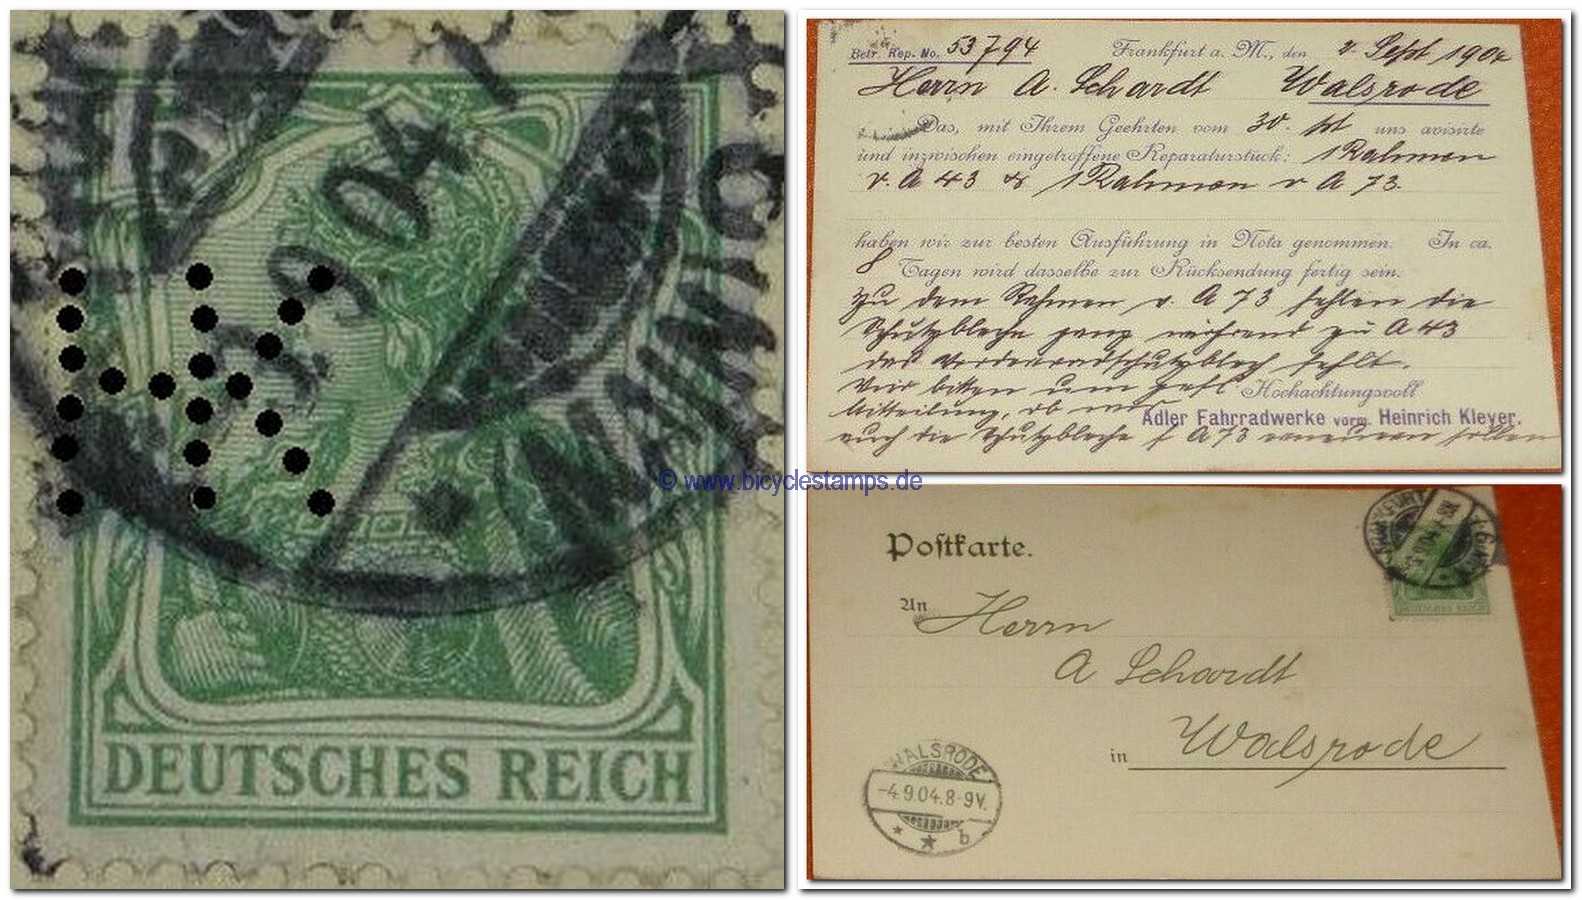 04
DEUTSCHES REICH
Betr. Rep. No. 53794 Frankfurt a. M., den 2. Sept 1904
Herrn A. Schardt Walsrode
Das, mit Ihrem Geehrten vom 30. pt uns avisirte
und inzwischen eingetroffene Reparaturstück: 1 Rahmen
v. A 43 & 1 Rahmen v A 73.
haben wir zur besten Ausführung in Nota genommen. In ca.
8 Tagen wird dasselbe zur Rücksendung fertig sein.
Zu dem Rahmen v. A 73 fehlen die
Schutzbleche ganz während zu A 43
das Vorderradschutzblech fehlt.
Wir bitten um gefl. Hochachtungsvoll
Mitteilung, ob wir
Adler Fahrradwerke vorm. Heinrich Kleyer.
auch die Schutzbleche f A 73 erneuern sollen
© www.bicyclestamps.de
Postkarte.
FRANKFURT
DEUTSCHES REICH
An Herrn
A Schardt
in Walsrode
WALSRODE
-4.9.04.8-9V.
* * b